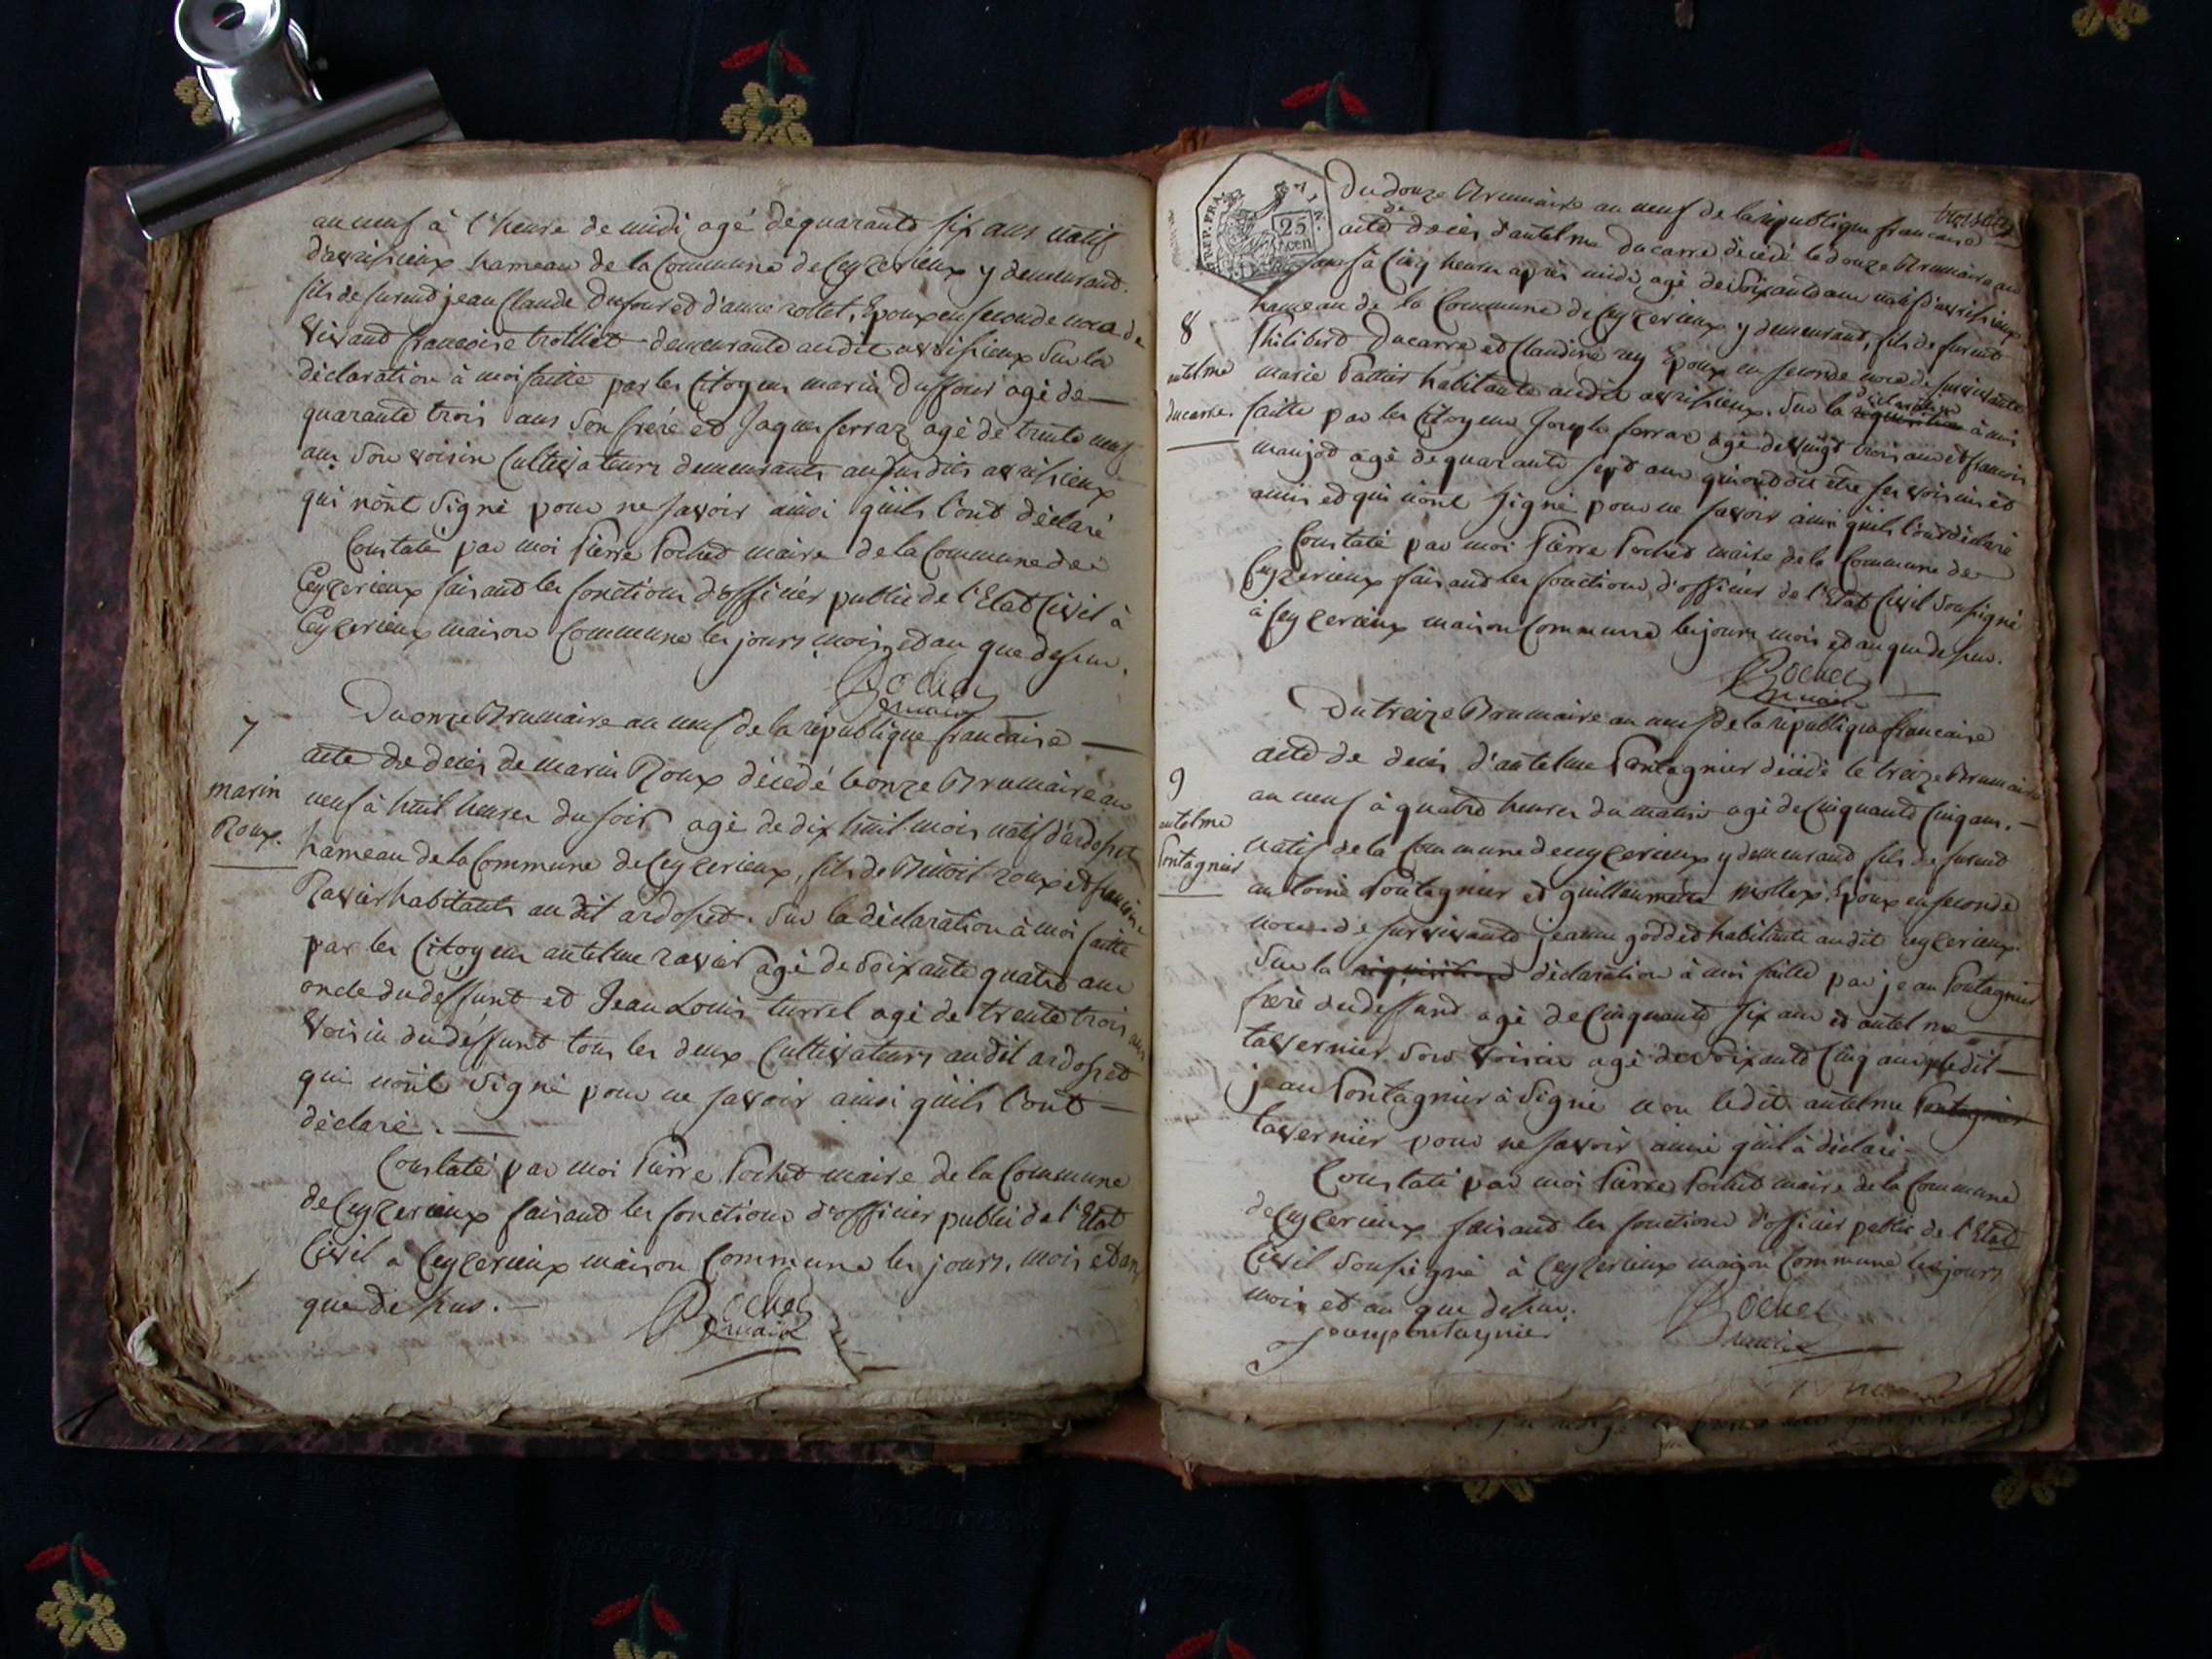 an neuf à l'heure de midi agé de quarante six ans natif
d'avrisieux hameau de la Commune de Ceyzerieux y demeurand.
fils de furent jean Claude Dufour et d'anne rostet, Epoux en seconde noce de
vivand francoise trolliet demeurante audit avrisieux Sur la
déclaration à moi faitte par les Citoyens marin Duffour agé de
quarante trois ans Son frére et Jaques ferraz agé de trente neuf
ans Son voisin Cultivateurs demeurants au susdits avrisieux
qui n'ont Signé pour ne savoir ainsi qu'ils l'ont déclaré
Constaté par moi Pierre Pochet maire de la Commune de
Ceyzerieux faisand les fonctions d'officier public de l'Etat Civil à
Ceyzerieux maison Commune les jours, mois et an que dessus.
Pochet
maire
7
marin
Roux.
Du onze Brumaire an neuf de la république francaise
acte de deces de marin Roux décédé le onze Brumaire an
neuf à huit heures du soir agé de dix huit mois natif d'ardosset
hameau de la Commune de Ceyzerieux, fils de Benoit roux et francoise
Ravier habitants au dit ardosset. Sur la déclaration à moi faitte
par les Citoyens antelme ravier agé de Soixante quatre ans
oncle du deffunt et Jean Louis turrel agé de trente trois ans
Voisin du déffunt tous les deux Cultivateurs audit ardosset
qui n'ont Signé pour ne savoir ainsi qu'ils l'ont
déclaré.
Constaté par moi Pierre Pochet maire de la Commune
de Ceyzerieux faisand les fonctions d'officier public de l'Etat
Civil a Ceyzerieux maison Commune les jours, mois et an
que dessus.
Pochet
maire
REP. FRA.
AIN.
25
cen
Du douze Brumaire an neuf de la république francaise
acte de deces d'antelme Ducarre décédé le douze Brumaire an
neuf à Cinq heures après midi agé de Soixante ans natif d'avrisieux
hameau de la Commune de Ceyzerieux y demeurand, fils de furent
8
antelme
ducarre.
Philibert Ducarre et Claudine rey Epoux en seconde noce de survivante
marie Pattier habitante audit avrisieux. Sur la réquisition déclaration à moi
faitte par les Citoyens Joseph ferraz agé de vingt trois ans et francois
maujod agé de quarante sept ans qui ont dit être ses voisins et
amis et qui n'ont signé pour ne savoir ainsi qu'ils l'ont déclaré
Constaté par moi Pierre Pochet maire de la Commune de
Ceyzerieux faisand les fonctions d'officier de l'Etat Civil Soussigné
à Ceyzerieux maison Commune les jours mois et an que dessus.
Pochet
maire
Du treize Brumaire an neuf de la république francaise
acte de deces d'antelme Pontagnier décédé le treize Brumaire
9
antelme
Pontagnier
an neuf à quatre heures du matin agé de Cinquante Cinq ans.
natif de la Commune de ceyzerieux y demeurand fils de furent
antoine Pontagnier et guillaumette mollex, Epoux en seconde
noce de survivante jeanne goddet habitante audit ceyzerieux.
Sur la réquisition déclaration à moi faitte par jean Pontagnier
frere du deffund agé de Cinquante six ans et antelme
tavernier Son Voisin agé de Soixante Cinq ans ledit
jean Pontagnier à Signé non ledit antelme Pontagnier
tavernier pour ne savoir ainsi qu'il à déclaré
Constaté par moi Pierre Pochet maire de la Commune
de Ceyzerieux faisand les fonctions d'officier public de l'Etat
Civil Soussigné à Ceyzerieux maison Commune les jours
mois et an que dessus.
jean pontagnier
Pochet
maire